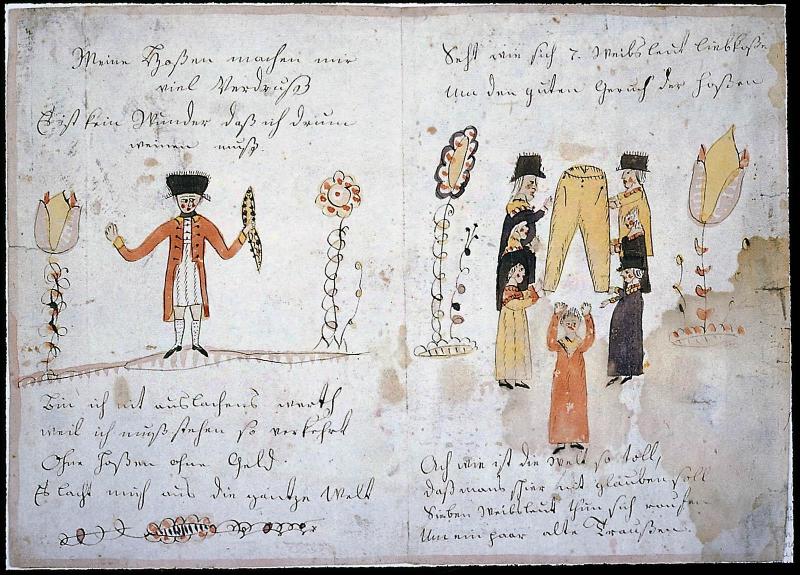 Meine Hoßen machen mir
viel Verdruß
Es ist kein Wunder daß ich drum
weinen muß
Bin ich nit auslachens werth
weil ich muß stehen so verkehrt
Ohne Hoßen ohne Geld
Es lacht mich aus die gantze Welt
Seht wie sich 7. Weibsleut liebkoße
Um den guten Geruch der Hoßen
Ach wie ist die Welt so toll,
daß mans schier nit glauben soll
Sieben Weibsleut thun sich raufen
Um ein paar alte